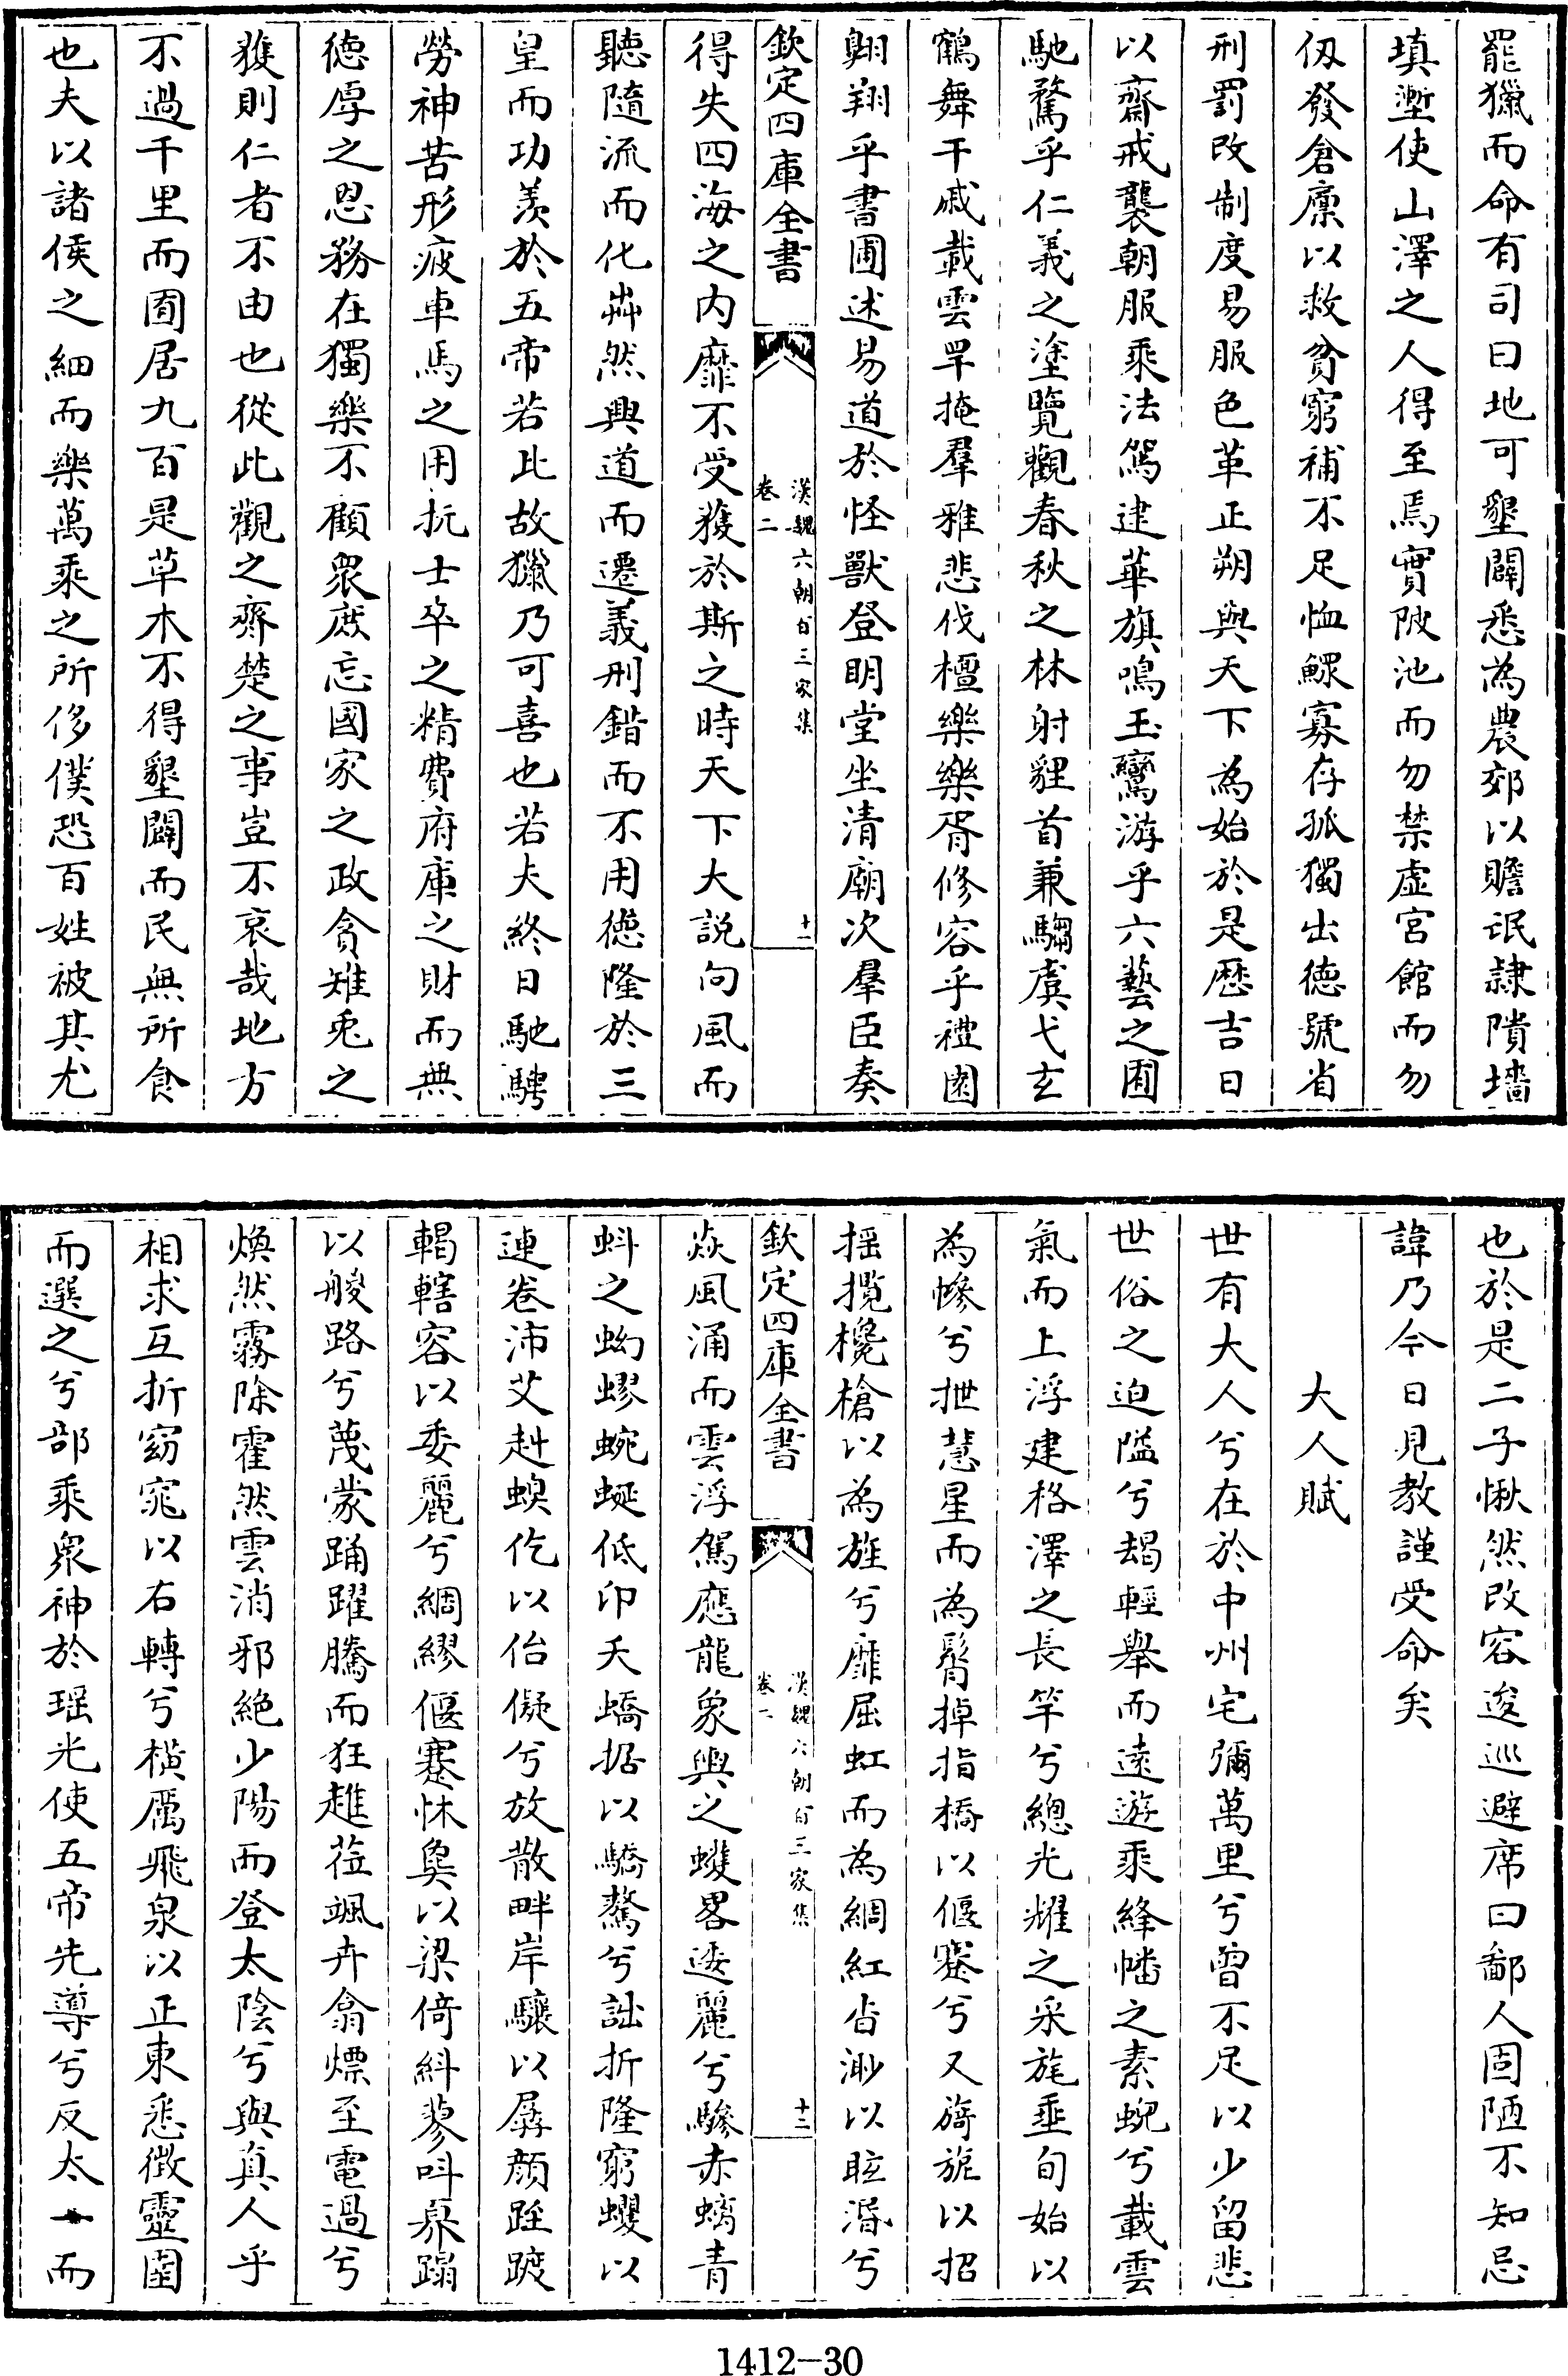 罷獵而命有司曰地可墾闢悉為農郊以贍氓隷隤墻
填壍使山澤之人得至焉實陂池而勿禁虛宮館而勿
仭發倉廩以救貧窮補不足恤鰥寡存孤獨出德號省
刑罰改制度易服色革正朔與天下為始於是歴吉日
以齋戒襲朝服乘法駕建華旗鳴玉鸞游乎六藝之囿
馳騖乎仁義之塗覽觀春秋之林射貍首兼騶虞弋玄
鶴舞干戚載雲䍐掩羣雅悲伐檀樂樂胥修容乎禮園
翺翔乎書圃述易道於怪獸登明堂坐清廟次羣臣奏
欽定四庫全書
漢魏六朝百三家集
卷二
十一
得失四海之内靡不受獲於斯之時天下大説向風而
聽隨流而化芔然興道而遷義刑錯而不用德隆於三
皇而功羨於五帝若此故獵乃可喜也若夫終日馳騁
勞神苦形疲車馬之用抏士卒之精費府庫之財而無
德厚之恩務在獨樂不顧衆庶忘國家之政貪雉兎之
獲則仁者不由也從此觀之齊楚之事豈不哀哉地方
不過千里而囿居九百是草木不得墾闢而民無所食
也夫以諸侯之細而樂萬乘之所侈僕恐百姓被其尤
也於是二子愀然改容逡巡避席曰鄙人固陋不知忌
諱乃今日見教謹受命矣
大人賦
世有大人兮在於中州宅彌萬里兮曽不足以少留悲
世俗之迫隘兮朅輕舉而遠遊乘絳幡之素蜺兮載雲
氣而上浮建格澤之長竿兮總光耀之采旄垂旬始以
為幓兮抴慧星而為髾掉指橋以偃蹇兮又旖旎以招
揺攬欃槍以為旌兮靡屈虹而為綢紅杳渺以眩湣兮
欽定四庫全書
漢魏六朝百三家集
卷二
十二
猋風涌而雲浮駕應龍象輿之蠖畧逶麗兮驂赤螭青
蚪之蚴蟉蜿蜒低卬夭蟜据以驕驁兮詘折隆窮蠼以
連卷沛艾赳螑仡以佁儗兮放散畔岸驤以孱顔跮踱
輵轄容以委麗兮綢繆偃蹇怵㚟以梁倚糾蓼叫奡蹋
以艐路兮蔑蒙踊躍騰而狂趡莅颯卉翕熛至電過兮
煥然霧除霍然雲消邪絶少陽而登太陰兮與真人乎
相求互折窈窕以右轉兮橫厲飛泉以正東悉徴靈圉
而選之兮部乘衆神於瑶光使五帝先導兮反太一而
1412—30